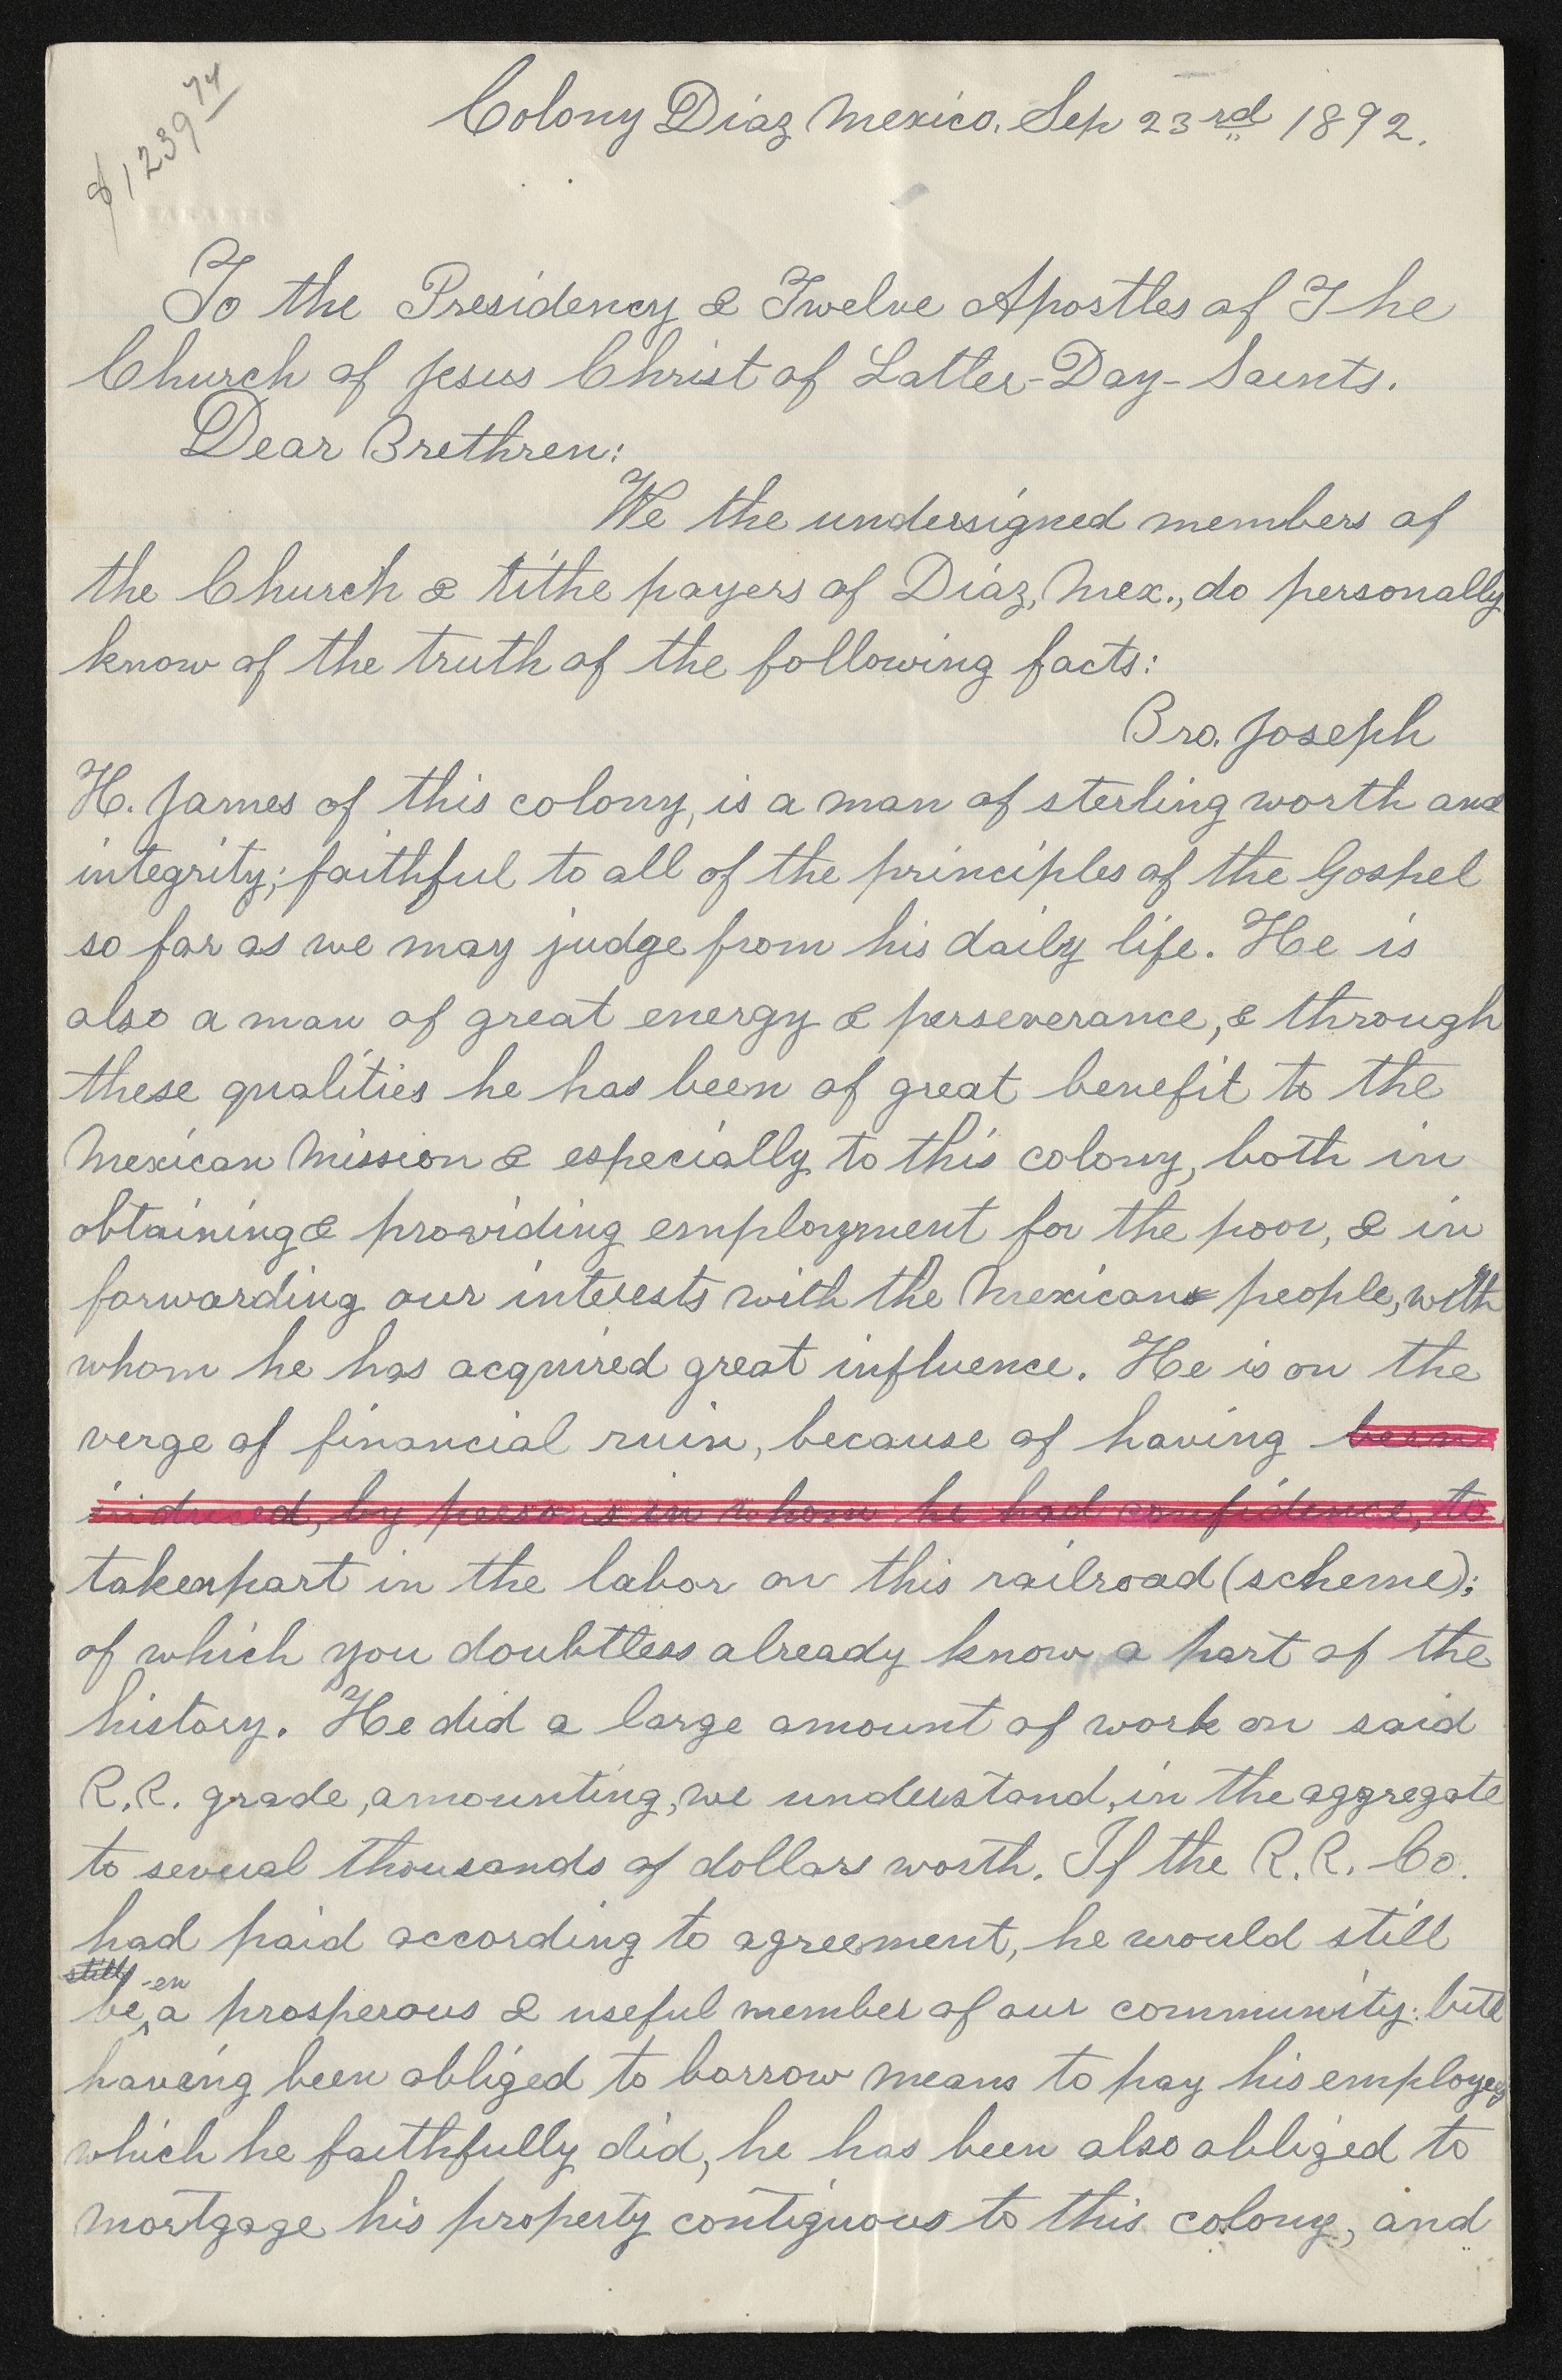 $1239 74
Colony Diaz Mexico, Sep 23rd 1892.
To the Presidency & Twelve Apostles of The
Church of Jesus Christ of Latter-Day-Saints.
Dear Brethren:
We the undersigned members of
the Church & tithe payers of Diaz, Mex., do personally
know of the truth of the following facts:
Bro. Joseph
H. James of this colony, is a man of sterling worth and
integrity; faithful to all of the principles of the Gospel
so far as we may judge from his daily life. He is
also a man of great energy & perseverance, & through
these qualities he has been of great benefit to the
Mexican Mission & especially to this colony, both in
obtaining & providing employment for the poor, & in
forwarding our interests with the Mexicans people, with
whom he has acquired great influence. He is on the
verge of financial ruin, because of having been
induced, by persons in whom he had confidence, to
taken part in the labor on this railroad (scheme);
of which you doubtless already know a part of the
history. He did a large amount of work on said
R.R. grade, amounting, we understand, in the aggregate
to several thousands of dollars worth. If the R.R. Co.
had paid according to agreement, he would still
still -en
be a prosperous & useful member of our community: but
having been obliged to borrow means to pay his employees
which he faithfully did, he has been also obliged to
mortgage his property contiguous to this colony, and